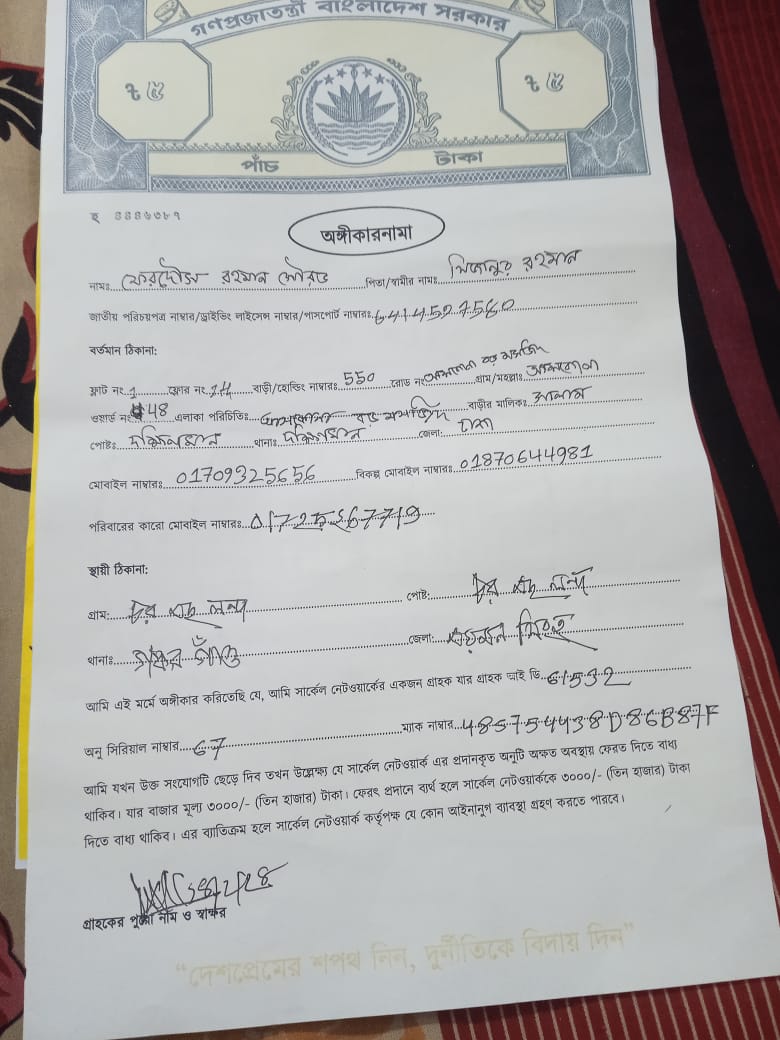 গণপ্রজাতন্ত্রী বাংলাদেশ সরকার
৳ ৫ ৳ ৫
পাঁচ টাকা
অঙ্গীকারনামা
নামঃ ফেরদৌস রহমান সৌরভ পিতা/স্বামীর নামঃ মিজানুর রহমান
জাতীয় পরিচয়পত্র নাম্বার/ড্রাইভিং লাইসেন্স নাম্বার/পাসপোর্ট নাম্বারঃ 6414527580
বর্তমান ঠিকানা:
ফ্লাট নং 1 ফ্লোর নং বাড়ী/হোল্ডিং নাম্বারঃ 550 রোড নং বড় মসজিদ গ্রাম/মহল্লাঃ
ওয়ার্ড নং 48 এলাকা পরিচিতিঃ বড় মসজিদ বাড়ীর মালিকঃ
পোষ্টঃ দক্ষিনখান থানাঃ দক্ষিনখান জেলা: ঢাকা
মোবাইল নাম্বারঃ 01709325656 বিকল্প মোবাইল নাম্বারঃ 01870644981
পরিবারের কারো মোবাইল নাম্বারঃ
স্থায়ী ঠিকানা:
গ্রাম: চর পোষ্ট: চর
থানাঃ গফর গাঁও জেলা:
আমি এই মর্মে অঙ্গীকার করিতেছি যে, আমি সার্কেল নেটওয়ার্কের একজন গ্রাহক যার গ্রাহক আই ডি 61532
অনু সিরিয়াল নাম্বার 67 ম্যাক নাম্বার 485754438D86B87F
আমি যখন উক্ত সংযোগটি ছেড়ে দিব তখন উল্লেক্ষ্য যে সার্কেল নেটওয়ার্ক এর প্রদানকৃত অনুটি অক্ষত অবস্থায় ফেরত দিতে বাধ্য
থাকিব। যার বাজার মূল্য ৩০০০/- (তিন হাজার) টাকা। ফেরৎ প্রদানে ব্যর্থ হলে সার্কেল নেটওয়ার্ককে ৩০০০/- (তিন হাজার) টাকা
দিতে বাধ্য থাকিব। এর ব্যাতিক্রম হলে সার্কেল নেটওয়ার্ক কর্তৃপক্ষ যে কোন আইনানুগ ব্যাবস্থা গ্রহণ করতে পারবে।
গ্রাহকের পুরো নাম ও স্বাক্ষর
“দেশপ্রেমের শপথ নিন, দুর্নীতিকে বিদায় দিন”